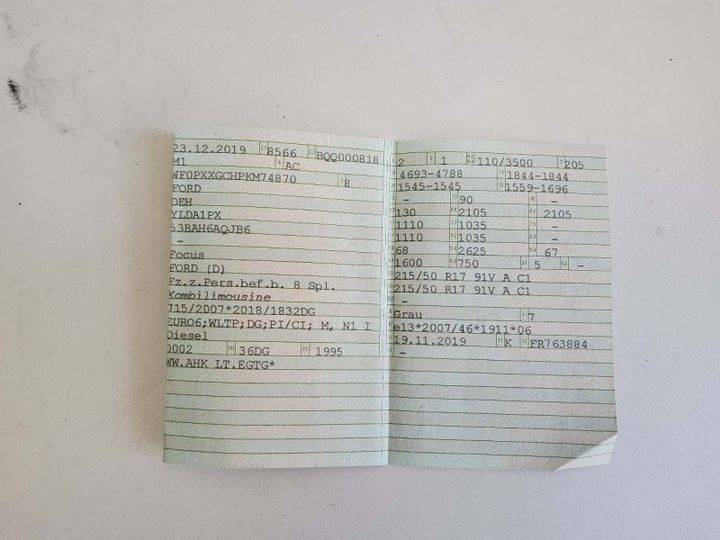 23.12.2019 8566 BQQ000818
M1 AC
WF0PXXGCHPKM74870 8
FORD
DEH
YLDA1PX
63BAH6AQJB6
-
Focus
FORD (D)
Fz.z.Pers.bef.b. 8 Spl.
Kombilimousine
715/2007*2018/1832DG
EURO6;WLTP;DG;PI/CI; M, N1 I
Diesel
0002 36DG 1995
WW.AHK LT.EGTG*
2 1 110/3500 205
4693-4788 1844-1844
1545-1545 1559-1696
- 90 -
130 2105 2105
1110 1035 -
1110 1035 -
68 2625 67
1600 750 5 -
215/50 R17 91V A C1
215/50 R17 91V A C1
-
Grau 7
e13*2007/46*1911*06
19.11.2019 K FR763884
-